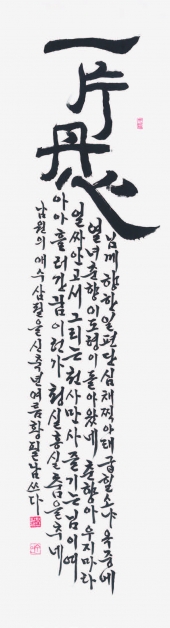 一片丹心
님께 향한 일편단심 채찍 아래 굴할소냐 옥중에
열녀 춘향 이도령이 돌아왔네 춘향아 우지마라
얼싸안고서 그리는 천사만사 즐기는 님이여
아아 흘러간 꿈이런가 청실홍실 춤을 추네
남원의 애수 삼절을 신축년 여름 황필남 쓰다